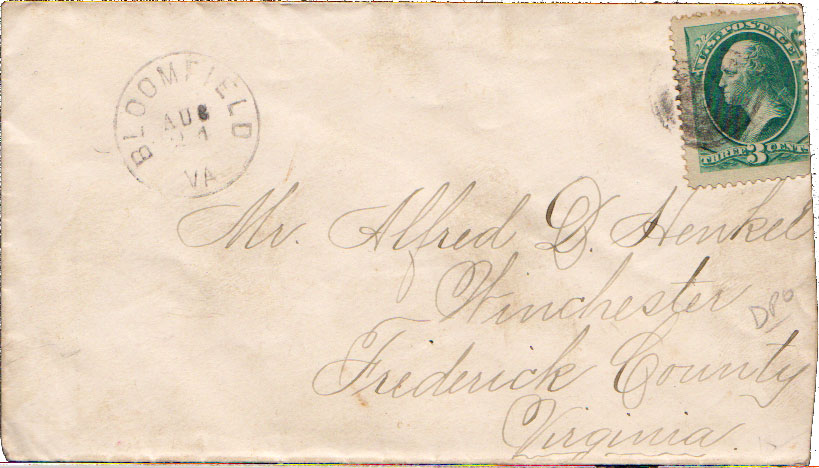 BLOOMFIELD
AUG
VA
U.S. POSTAGE
THREE 3 CENTS
Mr. Alfred D. Henkel
Winchester
DPO
Frederick County
Virginia.